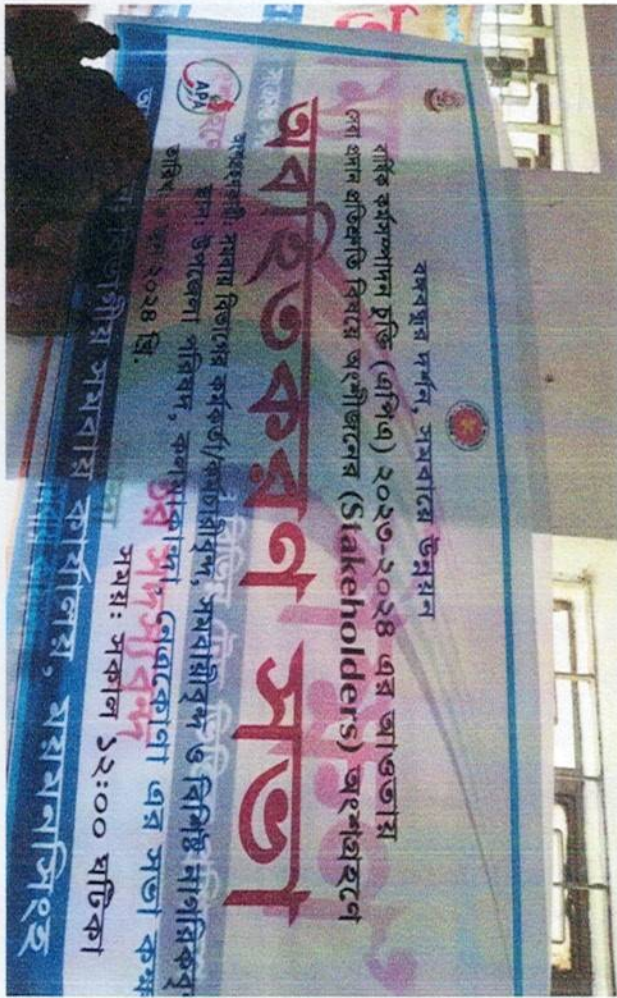 বঙ্গবন্ধুর দর্শন, সমবায়ে উন্নয়ন
বার্ষিক কর্মসম্পাদন চুক্তি (এপিএ) ২০২৩-২০২৪ এর আওতায়
সেবা প্রদান প্রতিশ্রুতি বিষয়ে অংশীজনের (Stakeholders) অংশগ্রহণে
অবহিতকরণ সভা
APA
সমবায় বিভাগের কর্মকর্তা/কর্মচারীবৃন্দ, সমবায়ীবৃন্দ ও বিশিষ্ট নাগরিকবৃ
স্থান: উপজেলা পরিষদ, কলমাকান্দা, নেত্রকোনা এর সভা কক্ষ
তারিখ: জুন ২০২৪ খ্রি.
সময়: সকাল ১২:০০ ঘটিকা
বিভাগীয় সমবায় কার্যালয়, ময়মনসিংহ
র সদস্যবৃন্দ